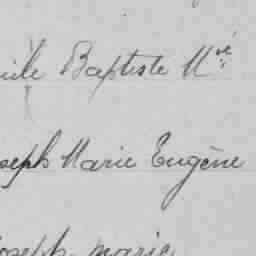 Baptiste M^ie
Joseph Marie Eugène
Joseph marie